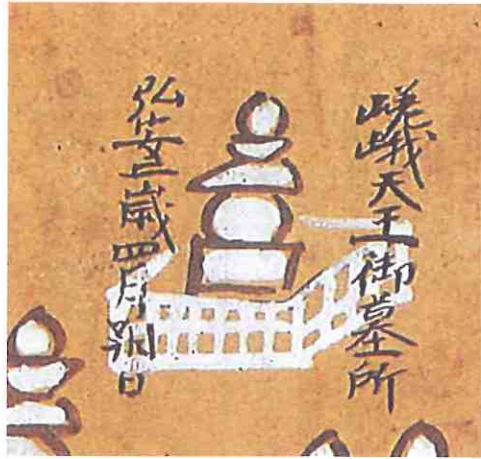 嵯峨天王御墓所
弘安歳四月朔日